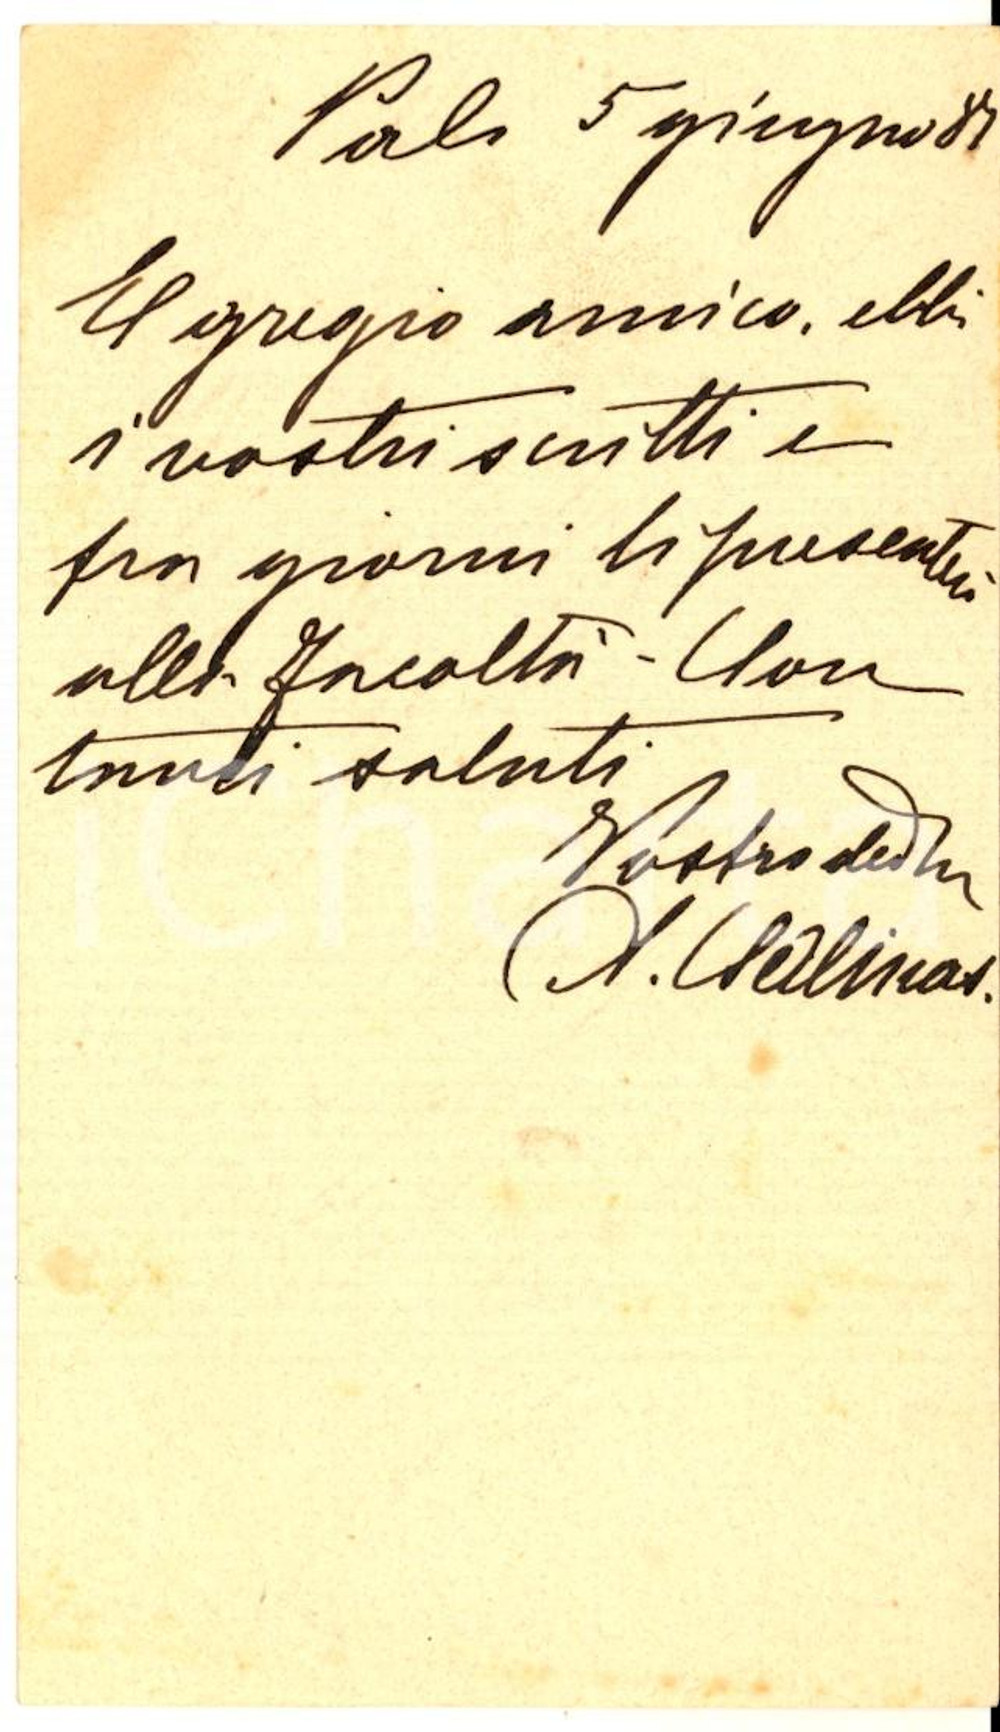 Pal. 5 giugno 87
Egregio amico, ebbi
i vostri scritti e
fra giorni li presenterò
alla Facoltà - Con
tanti saluti
Vostro
A. Salinas.